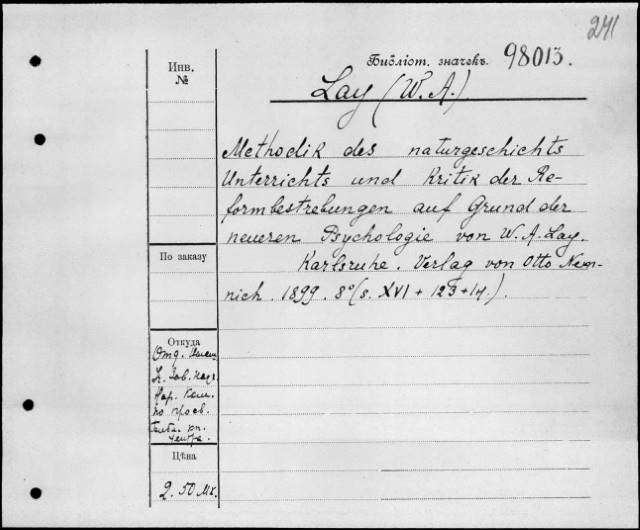 241
Инв.
№
Библіот. значекъ. 98013.
Lay (W. A.)
Methodik des naturgeschichts
Unterrichts und Kritik der Re-
formbestrebungen auf Grund der
neueren Psychologie von W. A. Lay.
По заказу
Karlsruhe. Verlag von Otto Nem-
nich. 1899. 8° (s. XVI + 123 + 14.).
Откуда
Отд.
Нар. Ком.
по просв.
Цѣна
2.50 Mk.